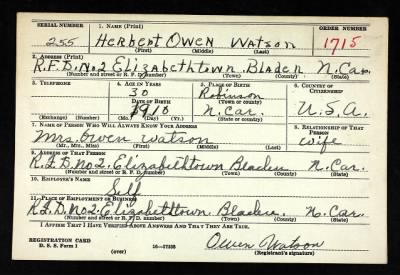 SERIAL NUMBER 1. NAME (Print) ORDER NUMBER
255 Herbert Owen Watson 1715
(First) (Middle) (Last)
2. ADDRESS (Print)
R.F.D. No 2 Elizabethtown Bladen N. Car.
(Number and street or R. F. D. number) (Town) (County) (State)
3. TELEPHONE 4. AGE IN YEARS 5. PLACE OF BIRTH 6. COUNTRY OF CITIZENSHIP
30 Robinson
DATE OF BIRTH (Town or county)
1910 N. Car. U.S.A.
(Exchange) (Number) (Mo.) (Day) (Yr.) (State or country)
7. NAME OF PERSON WHO WILL ALWAYS KNOW YOUR ADDRESS 8. RELATIONSHIP OF THAT PERSON
Mrs. Owen Watson wife
(Mr., Mrs., Miss) (First) (Middle) (Last)
9. ADDRESS OF THAT PERSON
R.F.D. No 2. Elizabethtown Bladen N. Car.
(Number and street or R. F. D. number) (Town) (County) (State)
10. EMPLOYER'S NAME
Self
11. PLACE OF EMPLOYMENT OR BUSINESS
R.F.D. No 2. Elizabethtown Bladen N. Car.
(Number and street or R. F. D. number) (Town) (County) (State)
I AFFIRM THAT I HAVE VERIFIED ABOVE ANSWERS AND THAT THEY ARE TRUE.
REGISTRATION CARD
D. S. S. Form 1 (over) 16-17105 Owen Watson
(Registrant's signature)